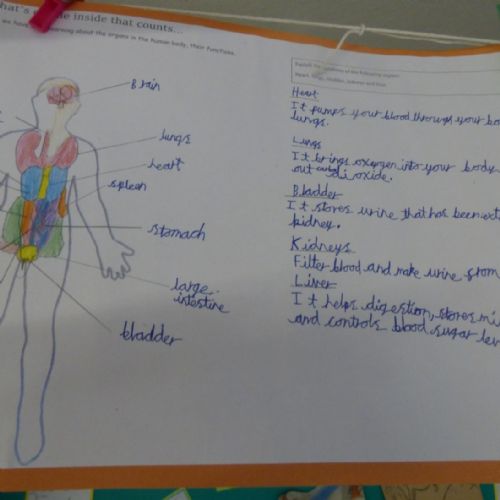 hat's inside that counts...
we have learning about the organs in the human body, their functions.
Brain
lungs
heart
spleen
stomach
large
intestine
bladder
Explain the functions of the following organs:
Heart, lungs, bladder, kidneys and liver.
Heart
It pumps your blood through your
lungs.
Lungs
It brings oxygen into your body
out dioxide.
Bladder
It stores urine that has been
kidney.
Kidneys
Filter blood and make urine from
Liver
It helps digestion, stores
and controls blood sugar